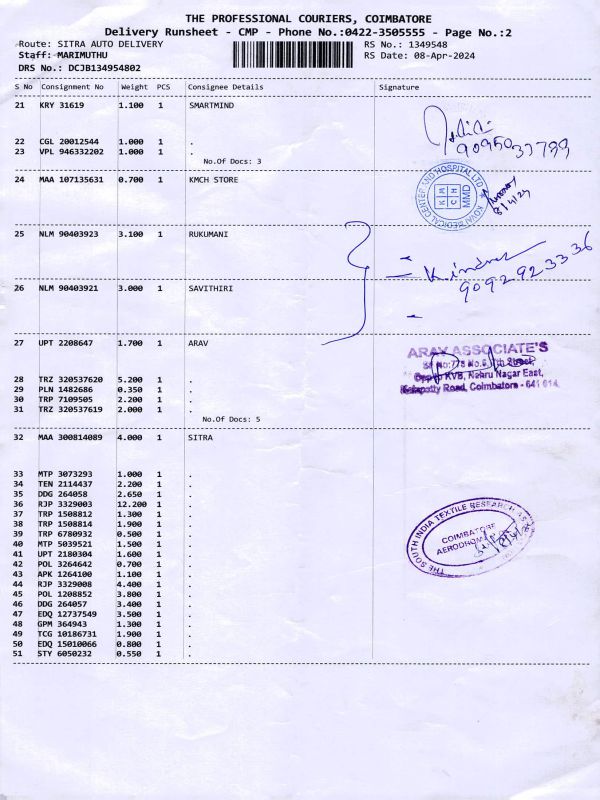 THE PROFESSIONAL COURIERS, COIMBATORE
Delivery Runsheet - CMP - Phone No.:0422-3505555 - Page No.:2
Route: SITRA AUTO DELIVERY RS No.: 1349548
Staff: MARIMUTHU RS Date: 08-Apr-2024
DRS No.: DCJB134954802
S No Consignment No Weight PCS Consignee Details Signature
21 KRY 31619 1.100 1 SMARTMIND
22 CGL 20012544 1.000 1 .
23 VPL 946332202 1.000 1 .
No.Of Docs: 3
9095037799
24 MAA 107135631 0.700 1 KMCH STORE
KOVAI MEDICAL CENTER AND HOSPITAL LTD
KMCH
MMD
8/4/24
25 NLM 90403923 3.100 1 RUKUMANI
9092923336
26 NLM 90403921 3.000 1 SAVITHIRI
27 UPT 2208647 1.700 1 ARAV
ARAV ASSOCIATE'S
Nehru Nagar East,
Kalapatty Road, Coimbatore - 641 014.
28 TRZ 320537620 5.200 1 .
29 PLN 1482686 0.350 1 .
30 TRP 7109505 2.200 1 .
31 TRZ 320537619 2.000 1 .
No.Of Docs: 5
32 MAA 300814089 4.000 1 SITRA
33 MTP 3073293 1.000 1 .
34 TEN 2114437 2.200 1 .
35 DDG 264058 2.650 1 .
36 RJP 3329003 12.200 1 .
37 TRP 1508812 1.300 1 .
38 TRP 1508814 1.900 1 .
39 TRP 6780932 0.500 1 .
40 MTP 5039521 1.500 1 .
41 UPT 2180304 1.600 1 .
42 POL 3764642 0.700 1 .
43 APK 1264100 1.100 1 .
44 RJP 3329008 4.400 1 .
45 POL 1208852 3.800 1 .
46 DDG 264057 3.400 1 .
47 EDQ 12737549 3.500 1 .
48 GPM 364943 1.300 1 .
49 TCG 10186731 1.900 1 .
50 EDQ 15010066 0.800 1 .
51 STY 6050232 0.550 1 .
THE SOUTH INDIA TEXTILE RESEARCH
COIMBATORE
AERODROME